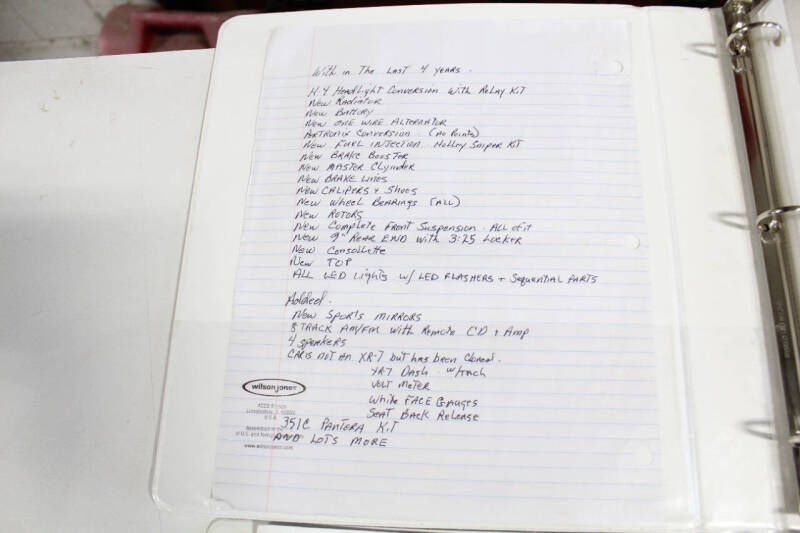 With in The Last 4 years.
H-4 Headlight Conversion with Relay Kit
New Radiator
New Battery
New one wire Alternator
Pertronix Conversion. (no Points)
New Fuel injection. Holley Sniper Kit
New Brake Booster
New Master Clynder
New Brake Lines
New Calipers + Shoes
New wheel Bearings (all)
New Rotors
New Complete Front Suspension. All of it
New 9" Rear End with 3:25 Locker
New Consollette
New Top
All LED Lights w/ LED Flashers + Sequential Parts
Added.
New Sports mirrors
8 Track AM/FM with Remote CD + Amp
4 Speakers
Car is not an XR-7 but has been Cloned.
XR-7 Dash. w/tach
Volt Meter
White Face Gauges
Seat Back Release
wilsonjones
U.S.A.
351C Pantera Kit
and Lots more
www.wilsonjones.com